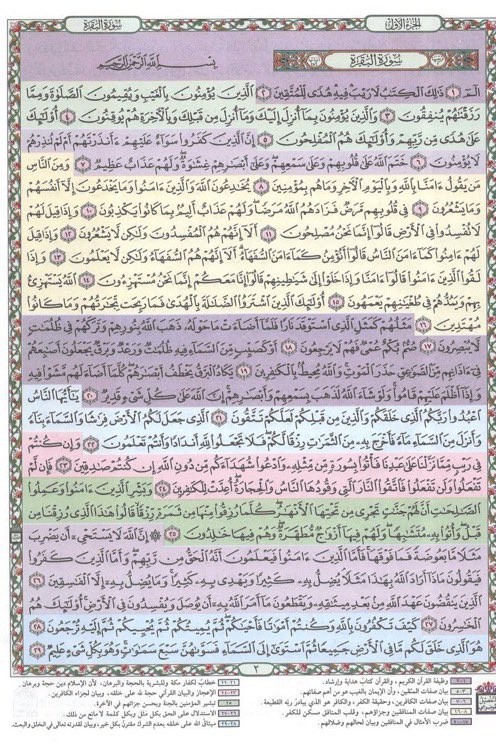 الجزء الأول
سورة البقرة
سورة البقرة
بسم الله الرحمن الرحيم
الٓمٓ ١ ذلك الكتب لا ريب فيه هدى للمتقين ٢ الذين يؤمنون بالغيب ويقيمون الصلوة ومما
رزقنهم ينفقون ٣ والذين يؤمنون بما أنزل إليك وما أنزل من قبلك وبالآخرة هم يوقنون ٤ أولئك
على هدى من ربهم وأولئك هم المفلحون ٥ إن الذين كفروا سواء عليهم ءأنذرتهم أم لم تنذرهم
لا يؤمنون ٦ ختم الله على قلوبهم وعلى سمعهم وعلى أبصرهم غشوة ولهم عذاب عظيم ٧ ومن الناس
من يقول ءامنا بالله وباليوم الآخر وما هم بمؤمنين ٨ يخدعون الله والذين ءامنوا وما يخدعون إلا أنفسهم
وما يشعرون ٩ في قلوبهم مرض فزادهم الله مرضا ولهم عذاب أليم بما كانوا يكذبون ١٠ وإذا قيل لهم
لا تفسدوا في الأرض قالوا إنما نحن مصلحون ١١ ألا إنهم هم المفسدون ولكن لا يشعرون ١٢ وإذا قيل
لهم ءامنوا كما ءامن الناس قالوا أنؤمن كما ءامن السفهاء ألا إنهم هم السفهاء ولكن لا يعلمون ١٣ وإذا
لقوا الذين ءامنوا قالوا ءامنا وإذا خلوا إلى شيطينهم قالوا إنا معكم إنما نحن مستهزءون ١٤ الله يستهزئ
بهم ويمدهم في طغينهم يعمهون ١٥ أولئك الذين اشتروا الضللة بالهدى فما ربحت تجرتهم وما كانوا
مهتدين ١٦ مثلهم كمثل الذي استوقد نارا فلما أضاءت ما حوله ذهب الله بنورهم وتركهم في ظلمت
لا يبصرون ١٧ صم بكم عمي فهم لا يرجعون ١٨ أو كصيب من السماء فيه ظلمت ورعد وبرق يجعلون أصبعهم
في ءاذانهم من الصوعق حذر الموت والله محيط بالكفرين ١٩ يكاد البرق يخطف أبصرهم كلما أضاء لهم مشوا فيه
وإذا أظلم عليهم قاموا ولو شاء الله لذهب بسمعهم وأبصرهم إن الله على كل شيء قدير ٢٠ يأيها الناس
اعبدوا ربكم الذي خلقكم والذين من قبلكم لعلكم تتقون ٢١ الذي جعل لكم الأرض فرشا والسماء بناء
وأنزل من السماء ماء فأخرج به من الثمرت رزقا لكم فلا تجعلوا لله أندادا وأنتم تعلمون ٢٢ وإن كنتم
في ريب مما نزلنا على عبدنا فأتوا بسورة من مثله وادعوا شهداءكم من دون الله إن كنتم صدقين ٢٣ فإن لم
تفعلوا ولن تفعلوا فاتقوا النار التي وقودها الناس والحجارة أعدت للكفرين ٢٤ وبشر الذين ءامنوا وعملوا
الصلحت أن لهم جنت تجري من تحتها الأنهر كلما رزقوا منها من ثمرة رزقا قالوا هذا الذي رزقنا من
قبل وأتوا به متشبها ولهم فيها أزوج مطهرة وهم فيها خلدون ٢٥ إن الله لا يستحيي أن يضرب
مثلا ما بعوضة فما فوقها فأما الذين ءامنوا فيعلمون أنه الحق من ربهم وأما الذين كفروا
فيقولون ماذا أراد الله بهذا مثلا يضل به كثيرا ويهدي به كثيرا وما يضل به إلا الفسقين ٢٦
الذين ينقضون عهد الله من بعد ميثقه ويقطعون ما أمر الله به أن يوصل ويفسدون في الأرض أولئك هم
الخسرون ٢٧ كيف تكفرون بالله وكنتم أموتا فأحيكم ثم يميتكم ثم يحييكم ثم إليه ترجعون ٢٨
هو الذي خلق لكم ما في الأرض جميعا ثم استوى إلى السماء فسوىهن سبع سموت وهو بكل شيء عليم ٢٩
٢
وظيفة القرآن الكريم، والقرآن كتاب هداية وإرشاد.
٣-٥ بيان صفات المتقين، وأن الإيمان بالغيب هو من أهم صفاتهم.
٦-٧ بيان صفات الكافرين، وحقيقة الكفر، والكافر هو الذي يبادر ربه القطيعة.
٨-١٦ بيان صفات المنافقين وجزاؤهم، وقلب المنافق مسكن للكفر.
١٧-٢٠ ضرب الأمثال في المنافقين وبيان لحالهم وضلالهم.
٢١-٢٢ خطاب لكفار مكة وللبشرية بالحجة والبرهان، لأن الإسلام دين حجة وبرهان.
٢٣-٢٤ الإعجاز والبيان القرآني حجة لله على خلقه، وبيان لجزاء الكافرين.
٢٥ تبشير المؤمنين بالجنة وبحسن جزائهم في الآخرة.
٢٦-٢٧ الاستدلال على الحق بكل مثل وبكل كلمة لا مانع من ذلك.
٢٨-٢٩ ميثاق الله على خلقه بعدم الشرك مقترن بكل خير، وبيان لقدرته تعالى في الخلق والبعث.